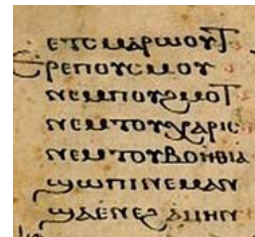 ⲉⲧⲥⲙⲁⲣⲱⲟⲩⲧ
Ⲉⲣⲉⲡⲟⲩⲥⲙⲟⲩ
ⲛⲉⲙⲡⲟⲩϩⲙⲟⲧ
ⲛⲉⲙⲧⲟⲩⲭⲁⲣⲓⲥ
ⲛⲉⲙⲧⲟⲩⲃⲟⲏⲑⲓⲁ
ϣⲱⲡⲓⲛⲉⲙⲁⲛ
ϣⲁⲉⲛⲉϩ ⲁⲙⲏⲛ